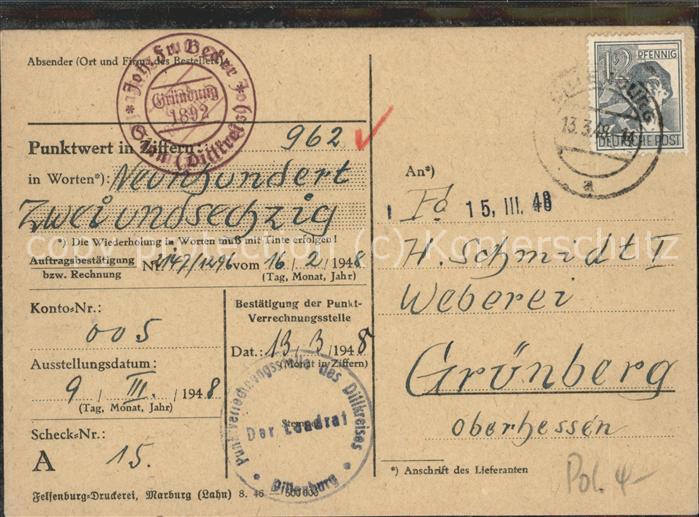 Absender (Ort und Firma des Bestellers)
Joh. Fr. Becker
Gründung
1892
(Dillkreis)
Punktwert in Ziffern: 962
in Worten*): Neunhundert
Zweiundsechzig
*) Die Wiederholung in Worten muß mit Tinte erfolgen!
Auftragsbestätigung
bzw. Rechnung
Nr. 2147/1296 vom 16 / 2 / 1948
(Tag, Monat, Jahr)
Konto-Nr.:
005
Ausstellungsdatum:
9 / III. / 1948
(Tag, Monat, Jahr)
Scheck-Nr.:
A 15.
Bestätigung der Punkt-
Verrechnungsstelle
Dat.: 13/3/1948
(Monat in Ziffern)
Punktverrechnungsstelle des Dillkreises
Der Landrat
Dillenburg
Felsenburg-Druckerei, Marburg (Lahn) 8. 46
12 PFENNIG
DEUTSCHE POST
13.3.48
a
An*)
Fa 15. III. 48
H. Schmidt I
Weberei
Grünberg
oberhessen
*) Anschrift des Lieferanten
(c) Kopierschutz